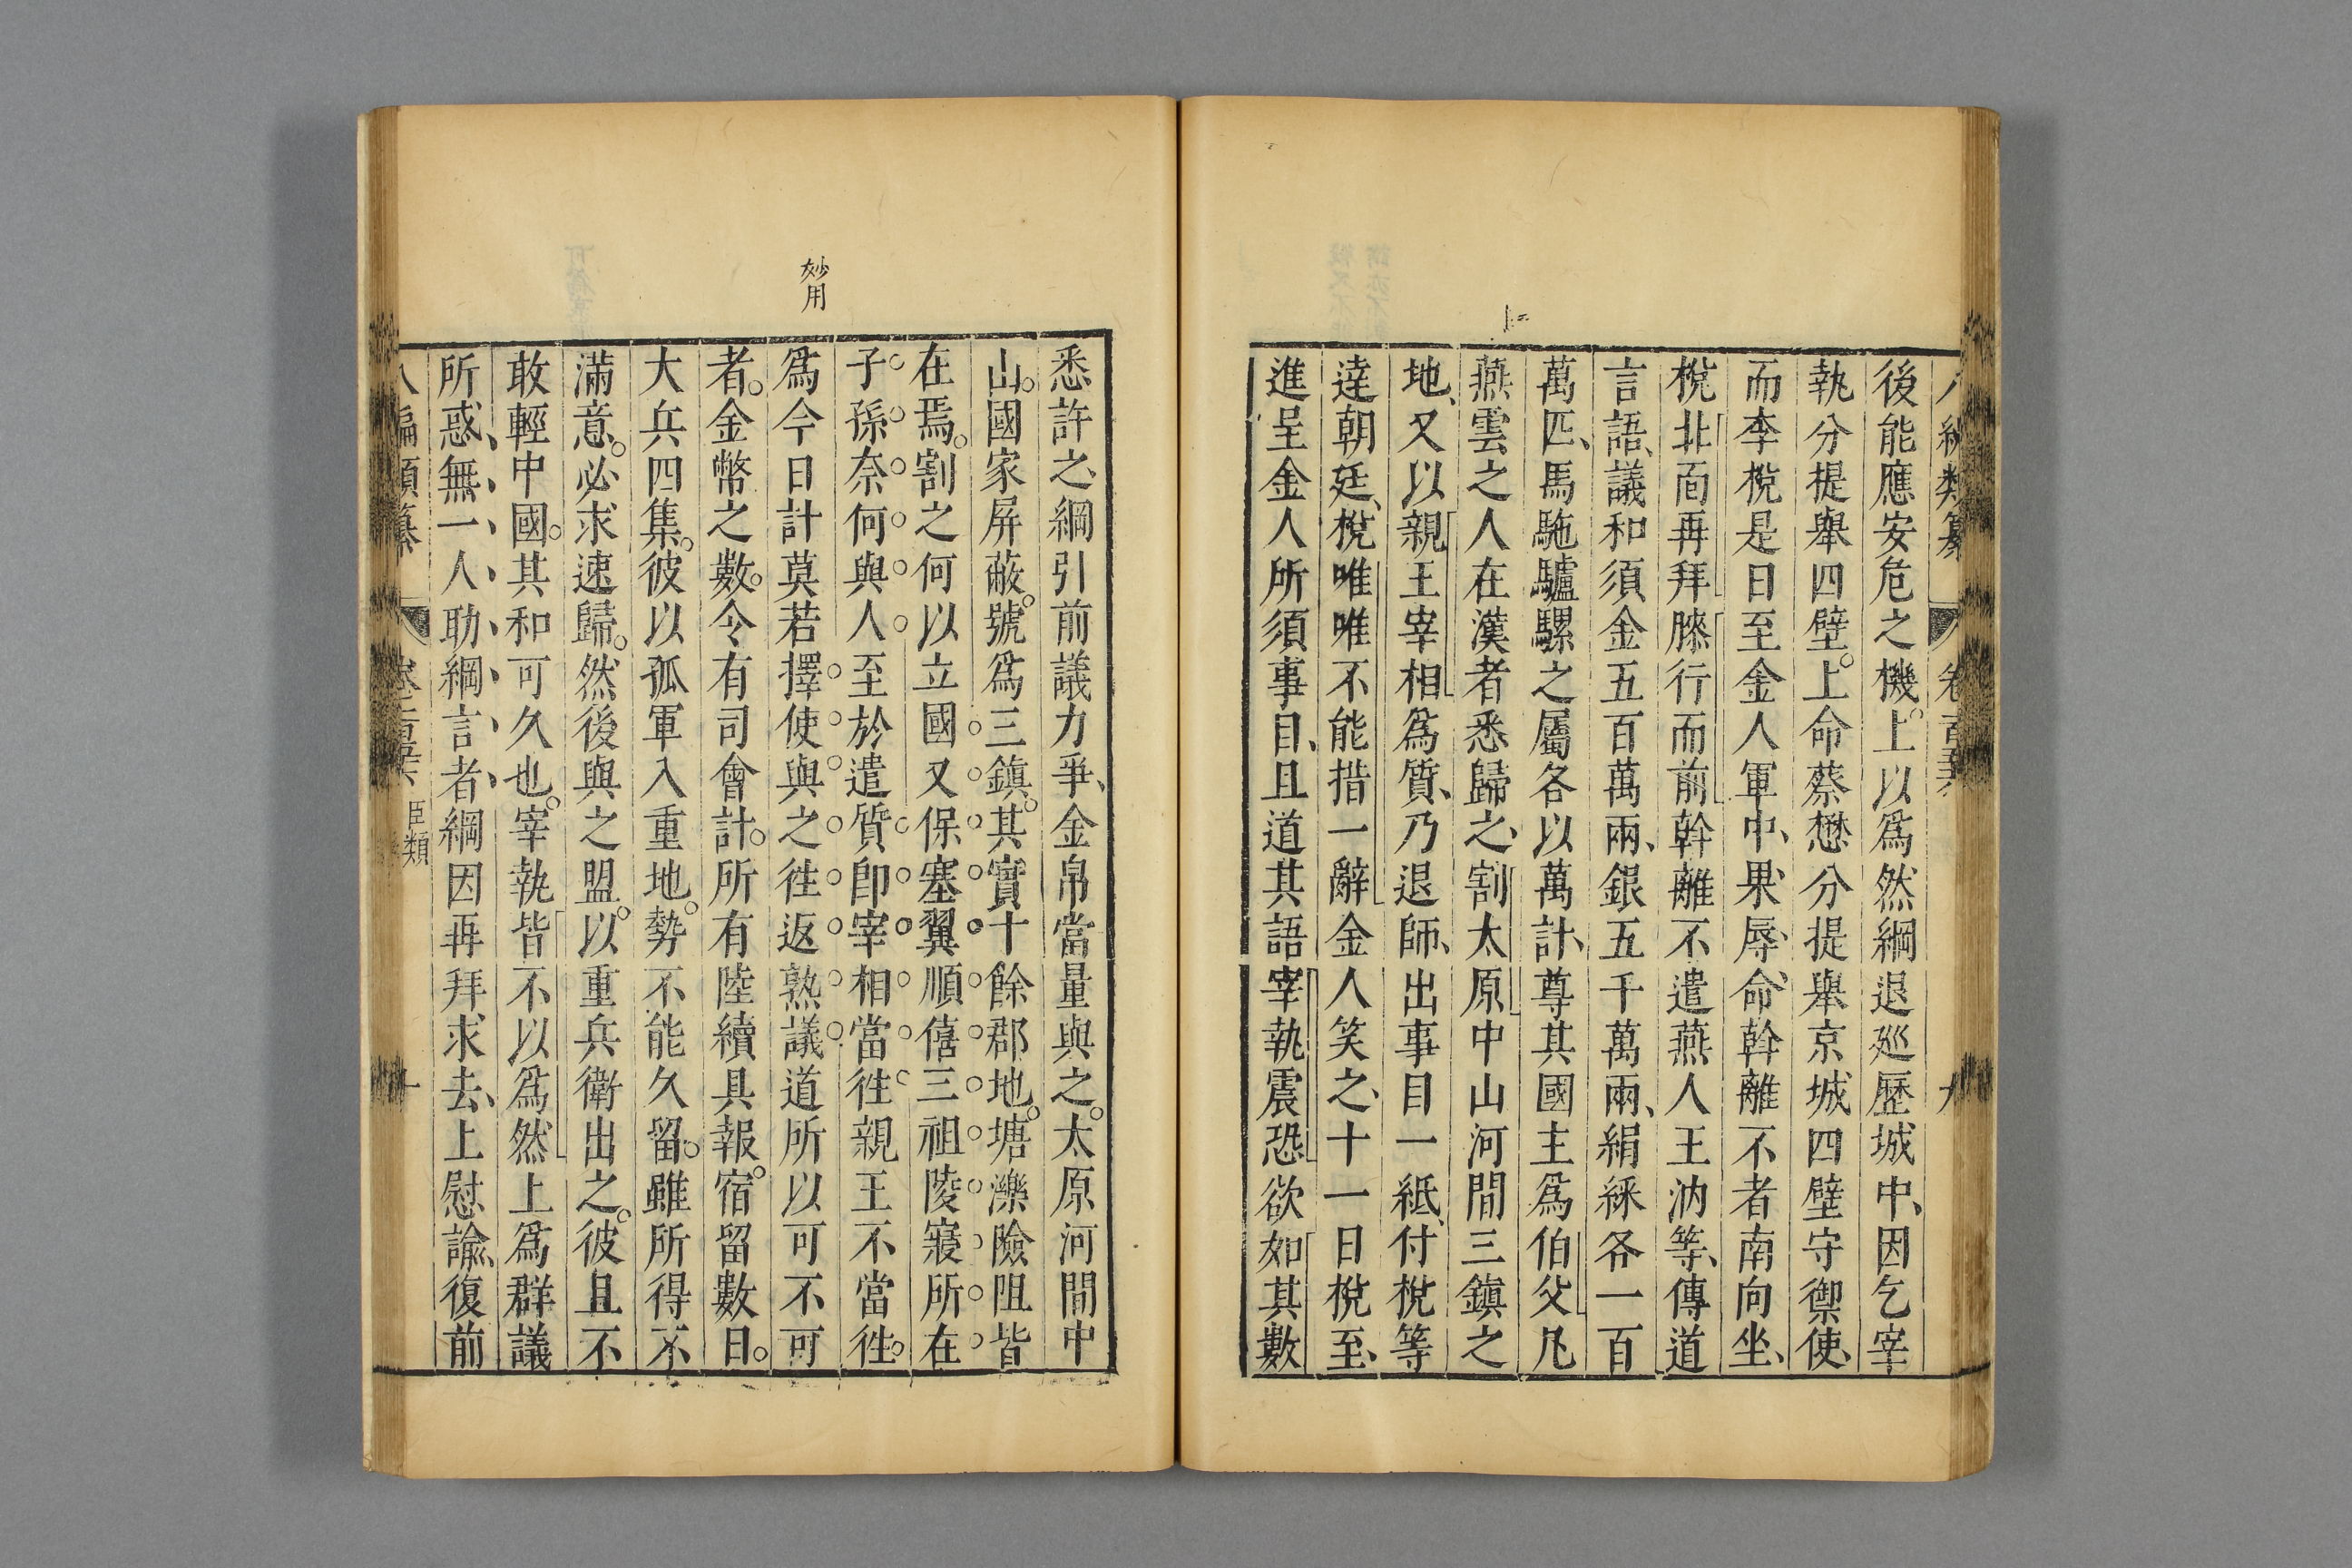 後能應安危之機上以爲然綱退廵歷城中因乞宰
執分提舉四壁上命蔡懋分提舉京城四壁守禦使
而李梲是日至金人軍中果辱命斡離不者南向坐
梲北面再拜膝行而前斡離不遣燕人王汭等傳道
言語議和須金五百萬兩銀五千萬兩絹綵各一百
萬匹馬駞驢騾之屬各以萬計尊其國主爲伯父凡
燕雲之人在漢者悉歸之割太原中山河間三鎭之
地又以親王宰相爲質乃退師出事目一紙付梲等
達朝廷梲唯唯不能措一辭金人笑之十一日梲至
進呈金人所須事目且道其語宰執震恐欲如其數
妙用
悉許之綱引前議力爭金帛當量與之太原河間中
山國家屏蔽號爲三鎭其實十餘郡地塘濼險阻皆
在焉割之何以立國又保塞翼順僖三祖陵寢所在
子孫奈何與人至於遣質卽宰相當徃親王不當徃
爲今日計莫若擇使與之徃返熟議道所以可不可
者金幣之數令有司會計所有陸續具報宿留數日
大兵四集彼以孤軍入重地勢不能久留雖所得不
滿意必求速歸然後與之盟以重兵衛出之彼且不
敢輕中國其和可久也宰執皆不以爲然上爲群議
所惑無一人助綱言者綱因再拜求去上慰諭復前
臣類